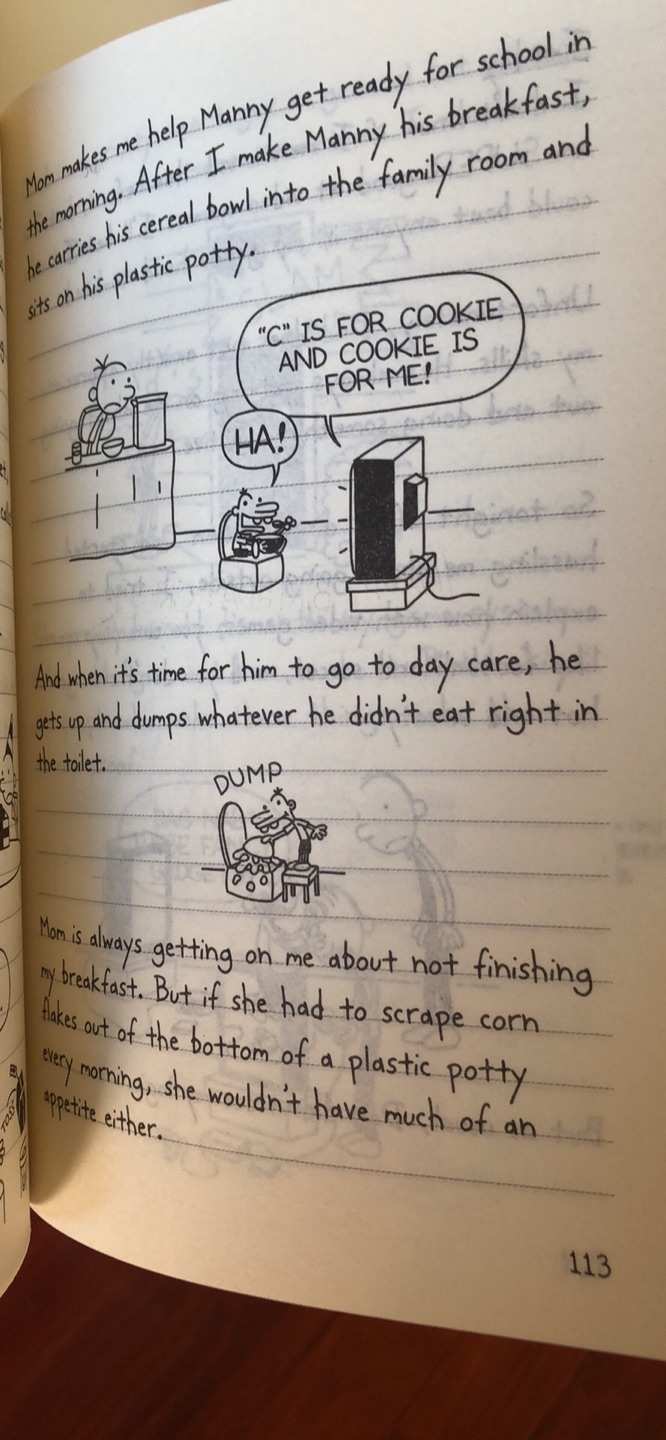 Mom makes me help Manny get ready for school in
the morning. After I make Manny his breakfast,
he carries his cereal bowl into the family room and
sits on his plastic potty.
"C" IS FOR COOKIE
AND COOKIE IS
FOR ME!
HA!
And when it's time for him to go to day care, he
gets up and dumps whatever he didn't eat right in
the toilet.
DUMP
Mom is always getting on me about not finishing
my breakfast. But if she had to scrape corn
flakes out of the bottom of a plastic potty
every morning, she wouldn't have much of an
appetite either.
113